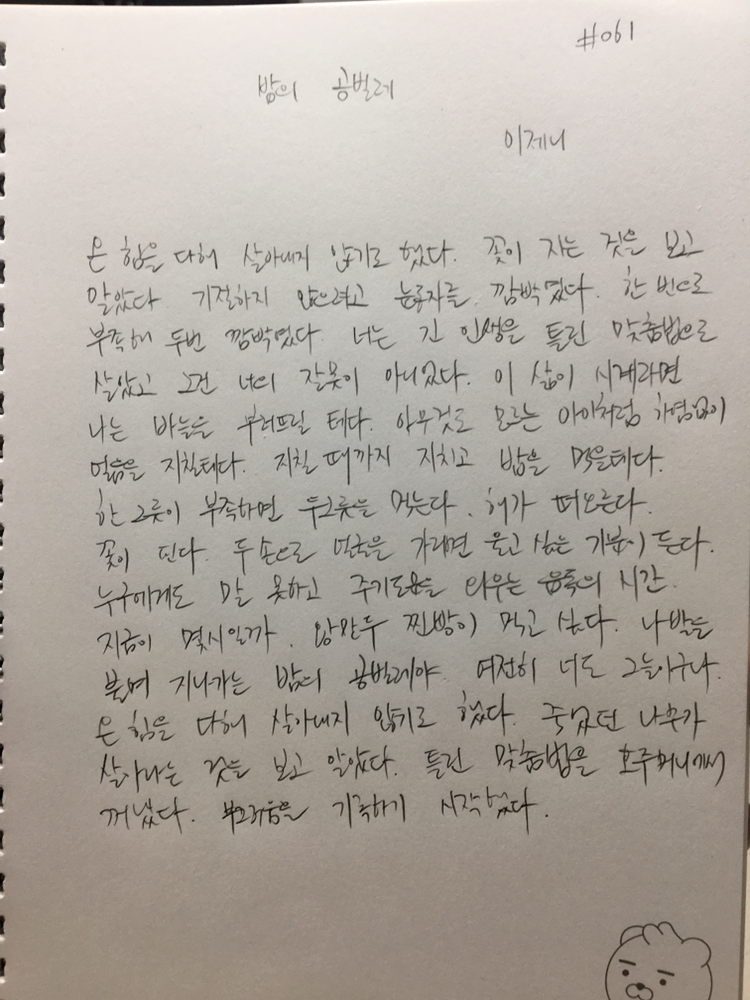 #061
밤의 공벌레
이제니
온 힘을 다해 살아내지 않기로 했다. 꽃이 지는 것을 보고
알았다 기절하지 않으려고 눈동자를 깜박였다. 한 번으로
부족해 두번 깜박였다. 너는 긴 인생을 틀린 맞춤법으로
살았고 그건 너의 잘못이 아니었다. 이 삶이 시계라면
나는 바늘을 부러뜨릴 테다. 아무것도 모르는 아이처럼 하염없이
얼음을 지칠테다. 지칠 때까지 지치고 밥을 먹을테다.
한 그릇이 부족하면 두그릇을 먹는다. 해가 떠오른다.
꽃이 핀다. 두 손으로 얼굴을 가리면 울고 싶은 기분이 든다.
누구에게도 말 못하고 주기도문을 외우는 음독의 시간.
지금이 몇시일까. 왕만두 찐빵이 먹고 싶다. 나발을
불며 지나가는 밤의 공벌레야. 여전히 너도 그늘이구나.
온 힘을 다해 살아내지 않기로 했다. 죽었던 나무가
살아나는 것을 보고 알았다. 틀린 맞춤법을 호주머니에서
꺼냈다. 부끄러움을 기록하기 시작했다.